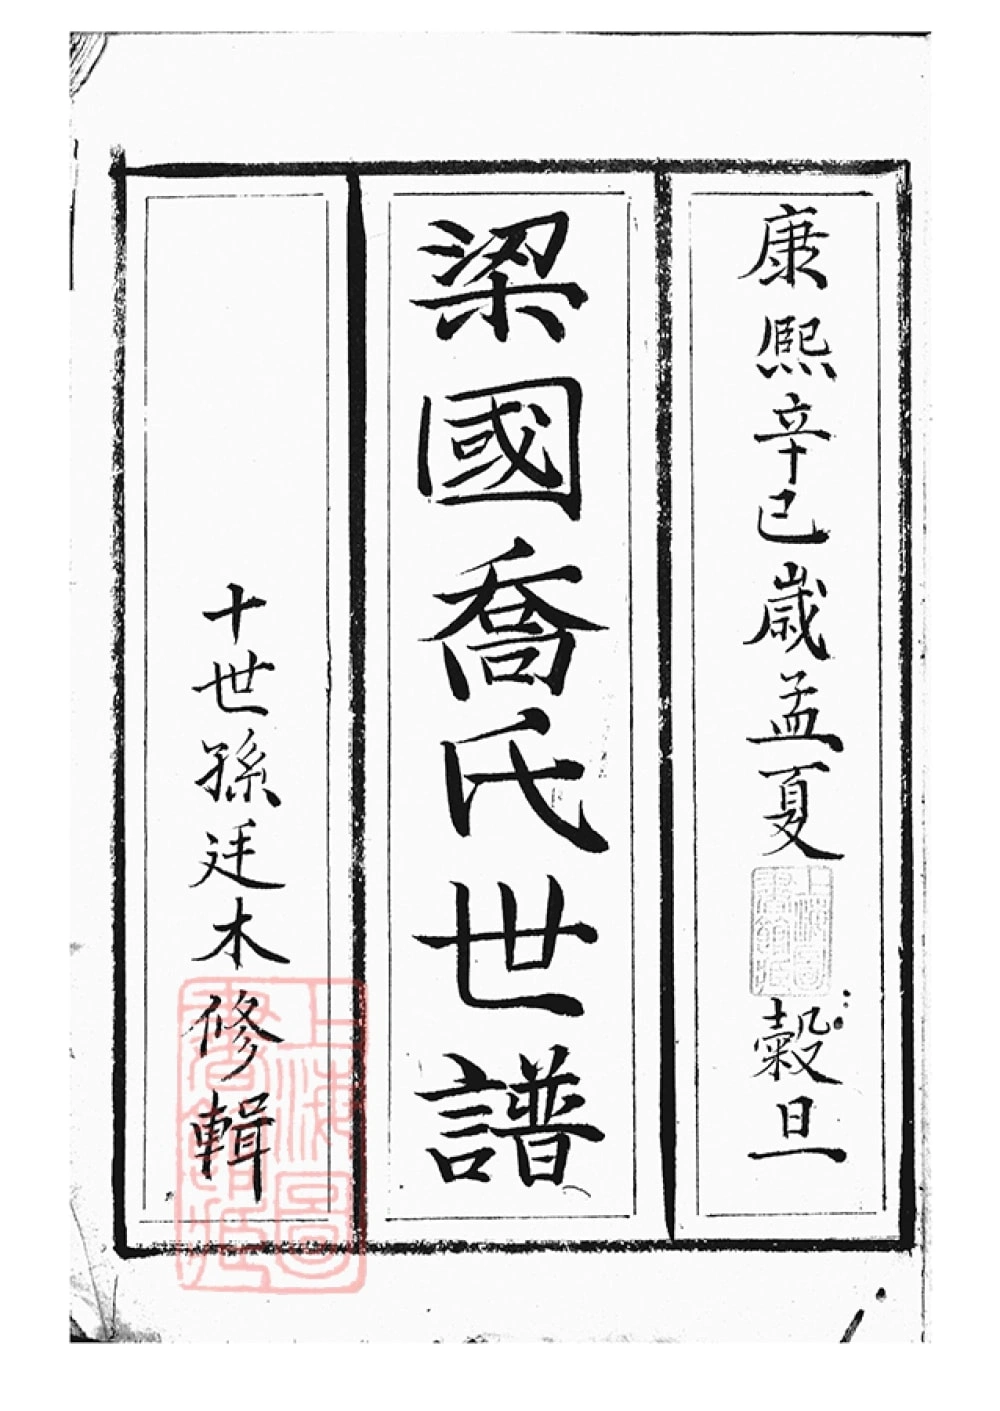 康熙辛巳歲孟夏穀旦
梁國喬氏世譜
十世孫廷木修輯
上海圖書館藏